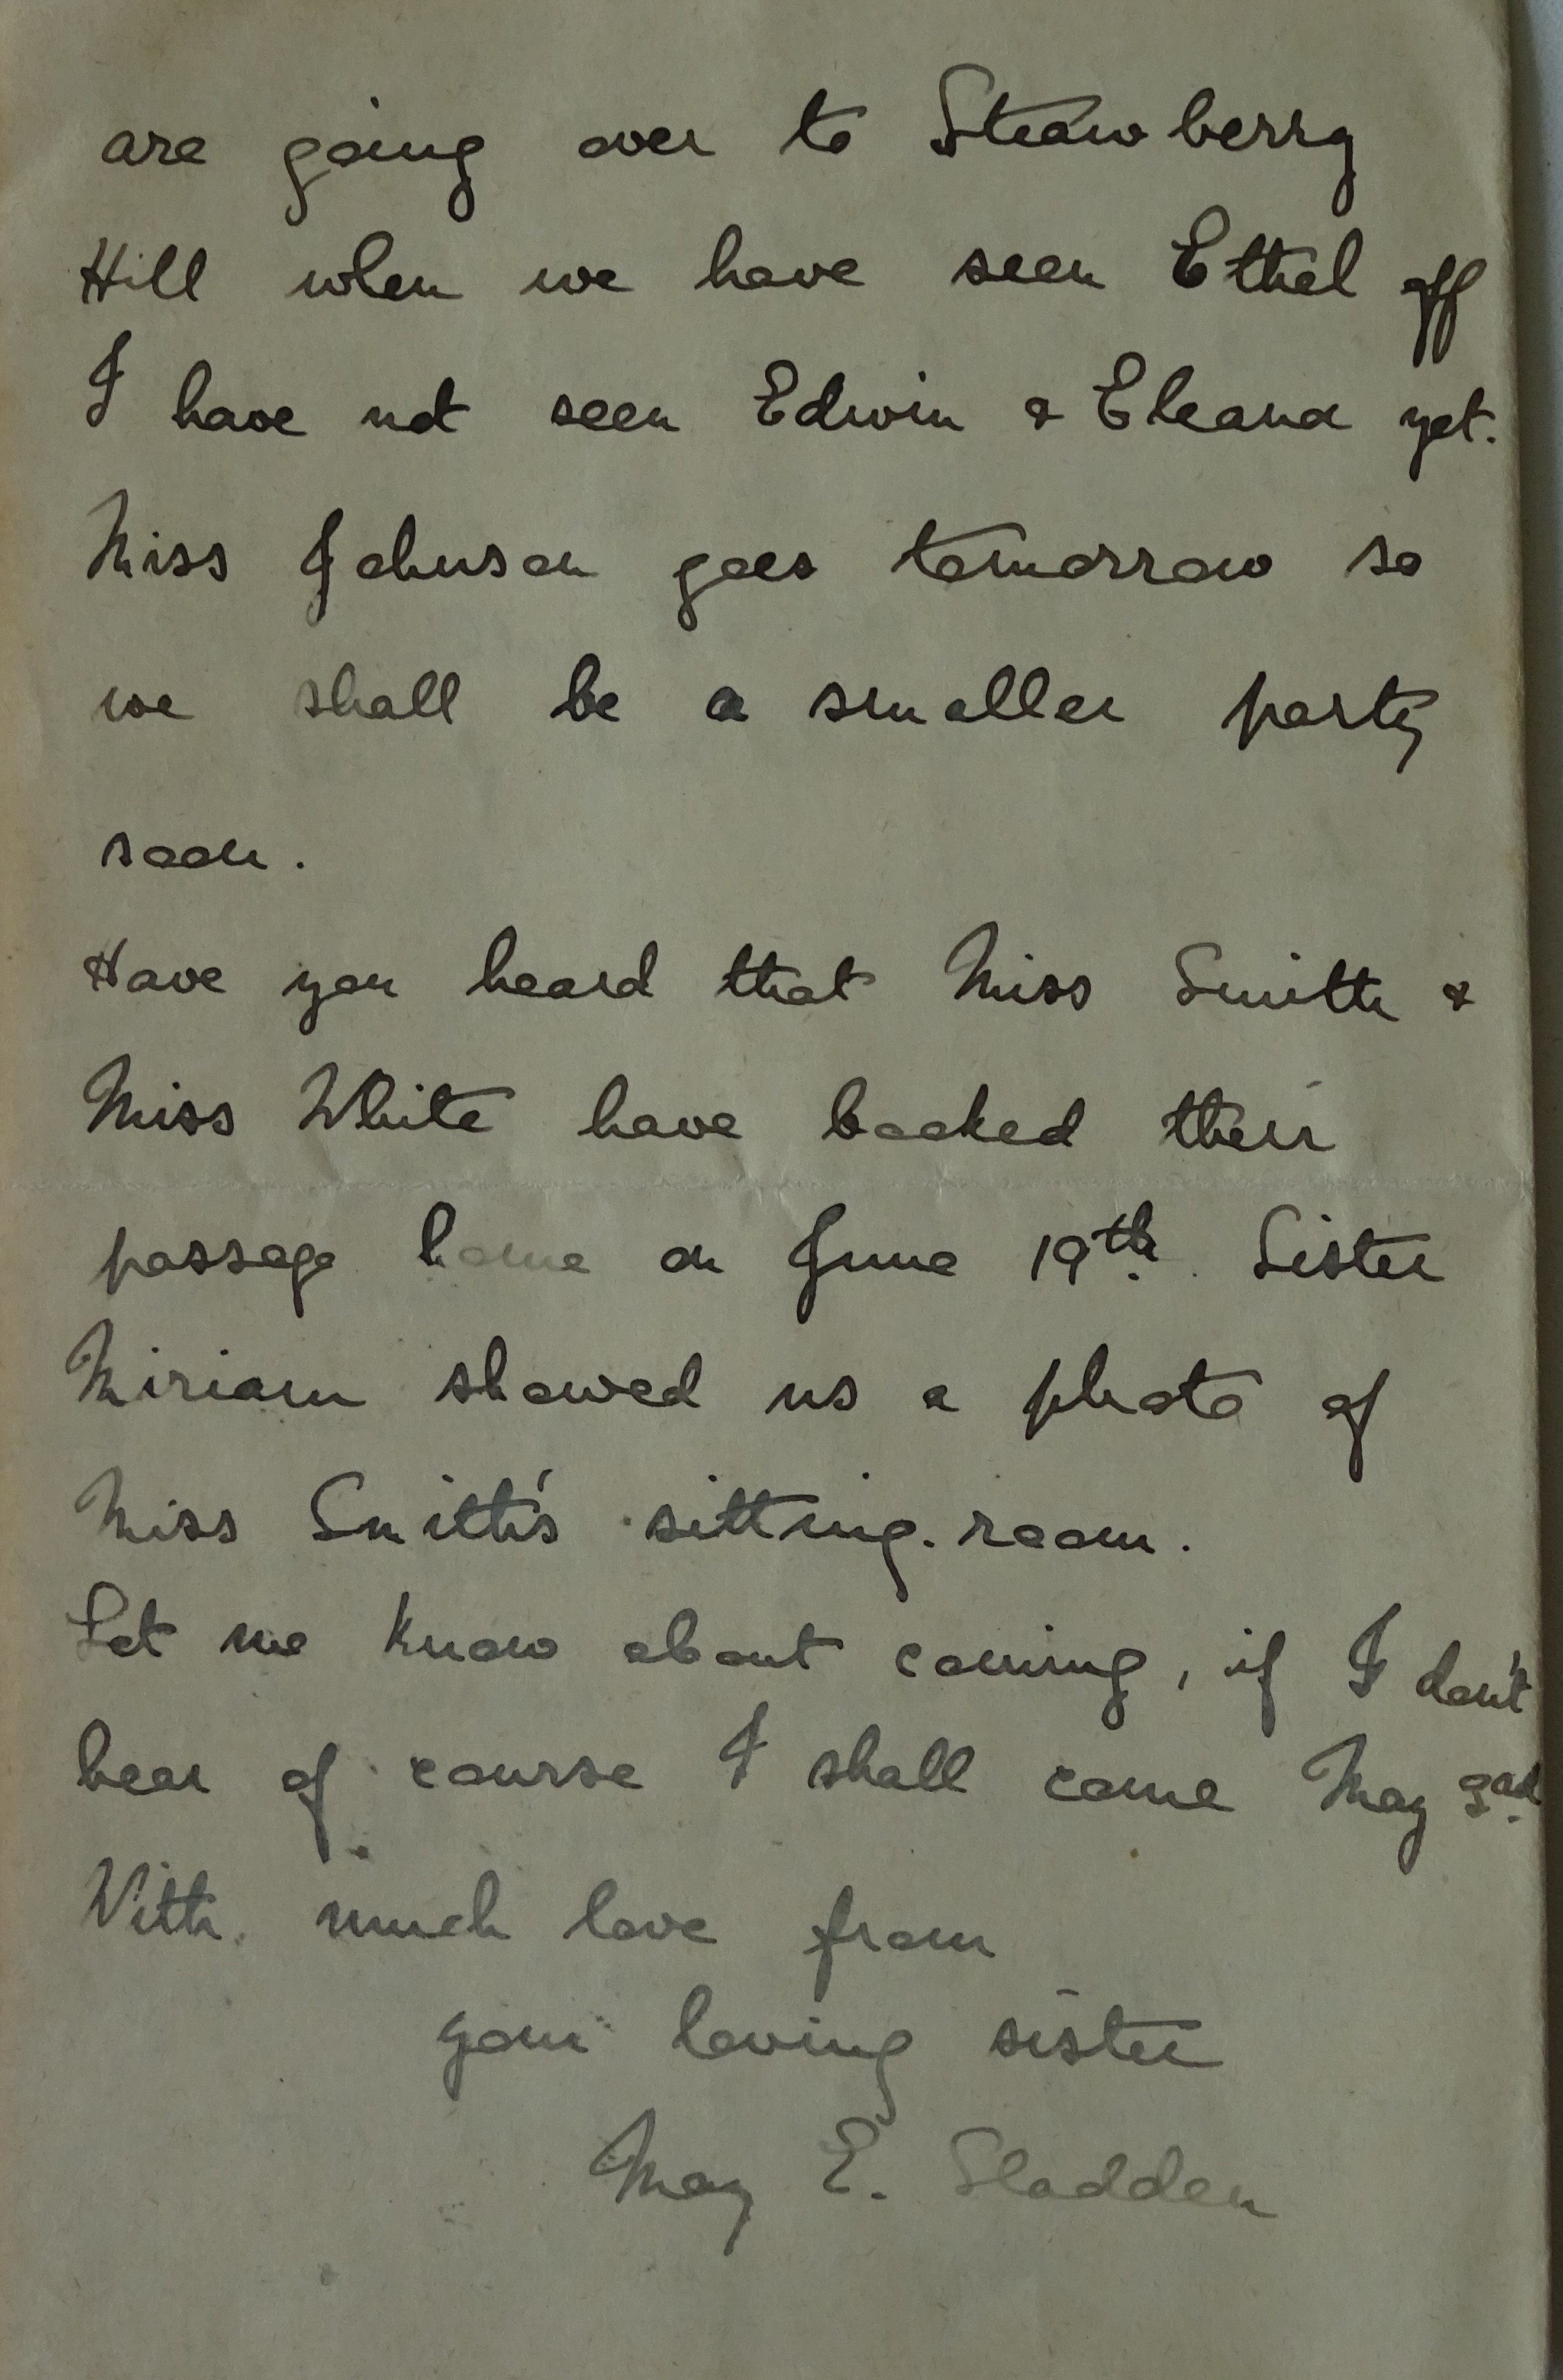 are going over to Strawberry
Hill when we have seen Ethel off
I have not seen Edwin & Eleanor yet.
Miss Johnson goes tomorrow so
we shall be a smaller party
soon.
Have you heard that Miss Smith &
Miss White have booked their
passage home on June 19th. Sister
Miriam showed us a photo of
Miss Smith's sitting-room.
Let me know about coming, if I don't
hear of course I shall come May
With much love from
your loving sister
May E. Sladden